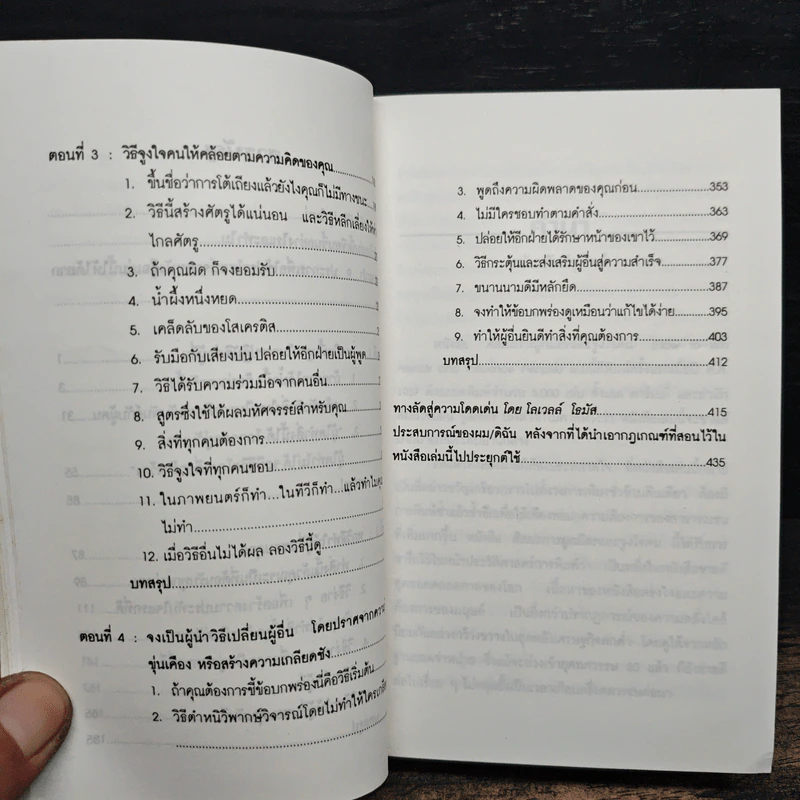 ตอนที่ 3 : วิธีจูงใจคนให้คล้อยตามความคิดของคุณ
1. ขึ้นชื่อว่าการโต้เถียงแล้วยังไงคุณก็ไม่มีทางชนะ
2. วิธีนี้สร้างศัตรูได้แน่นอน และวิธีหลีกเลี่ยงให้ห่าง
ไกลศัตรู
3. ถ้าคุณผิด ก็จงยอมรับ
4. น้ำผึ้งหนึ่งหยด
5. เคล็ดลับของโสเครตีส
6. รับมือกับเสียงบ่น ปล่อยให้อีกฝ่ายเป็นผู้พูด
7. วิธีได้รับความร่วมมือจากคนอื่น
8. สูตรซึ่งใช้ได้ผลมหัศจรรย์สำหรับคุณ
9. สิ่งที่ทุกคนต้องการ
10. วิธีจูงใจที่ทุกคนชอบ
11. ในภาพยนตร์ก็ทำ...ในทีวีก็ทำ...แล้วทำไมคุณ
ไม่ทำ
12. เมื่อวิธีอื่นไม่ได้ผล ลองวิธีนี้ดู
บทสรุป
ตอนที่ 4 : จงเป็นผู้นำ วิธีเปลี่ยนผู้อื่น โดยปราศจากความ
ขุ่นเคือง หรือสร้างความเกลียดชัง
1. ถ้าคุณต้องการชี้ข้อบกพร่องนี่คือวิธีเริ่มต้น
2. วิธีตำหนิวิพากษ์วิจารณ์โดยไม่ทำให้ใครเกลียด
3. พูดถึงความผิดพลาดของคุณก่อน 353
4. ไม่มีใครชอบทำตามคำสั่ง 363
5. ปล่อยให้อีกฝ่ายได้รักษาหน้าของเขาไว้ 369
6. วิธีกระตุ้นและส่งเสริมผู้อื่นสู่ความสำเร็จ 377
7. ขนานนามดีมีหลักยึด 387
8. จงทำให้ข้อบกพร่องดูเหมือนว่าแก้ไขได้ง่าย 395
9. ทำให้ผู้อื่นยินดีทำสิ่งที่คุณต้องการ 403
บทสรุป 412
ทางลัดสู่ความโดดเด่น โดย โลเวลล์ โธมัส 415
ประสบการณ์ของผม/ดิฉัน หลังจากที่ได้นำเอากฎเกณฑ์ที่สอนไว้ใน
หนังสือเล่มนี้ไปประยุกต์ใช้ 435